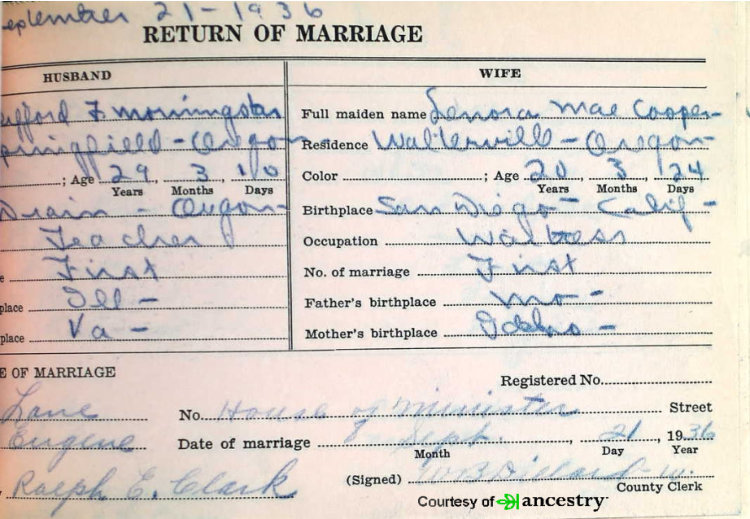 eptember 21-1936
RETURN OF MARRIAGE
HUSBAND WIFE
ifford F Morningstar Full maiden name Lenora Mae Cooper-
pringfield - Oregon Residence Walterville - Oregon
; Age 29 3 10 Color ; Age 20 3 24
Years Months Days Years Months Days
Drain - Oregon Birthplace San Diego - Calif -
Teacher Occupation Waitress
e First No. of marriage First
place Ill - Father's birthplace Mo -
place Va - Mother's birthplace Idaho -
E OF MARRIAGE Registered No.
Lane No. House of Minister Street
Eugene Date of marriage Sept. 21, 1936
Month Day Year
Ralph E. Clark (Signed)
County Clerk
Courtesy of ancestry